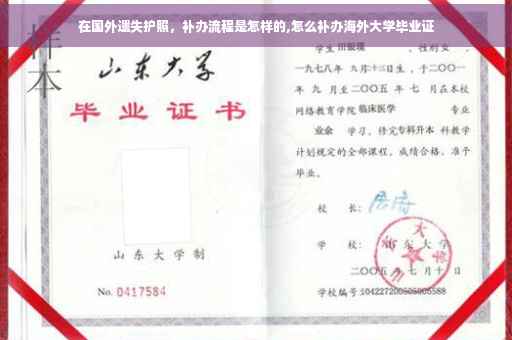 在国外遗失护照，补办流程是怎样的,怎么补办海外大学毕业证
样本
山东大学
毕业证书
山东大学制
No. 0417584
学生
性别女，
一九七八年 九月十三日生，于二〇〇一
年 九 月至二〇〇五 年 七 月在本校
网络教育学院临床医学 专业
业余 学习，修完专科升本 科教学
计划规定的全部课程，成绩合格，准予
毕业。
校 长：
学 校：山东大学
二〇〇五 年 七 月 十 日
学校编号: